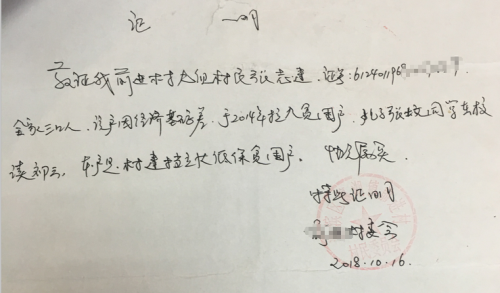 证 明
兹证我前进村 组村民张志建.证号:612401196
全家三口人.该户因经济基础差.于2014年 入贫困户.其子张 同学在校
读初三.本户是村建档立 低保贫困户. 情况属实
特此证明
村委会
2018.10.16.